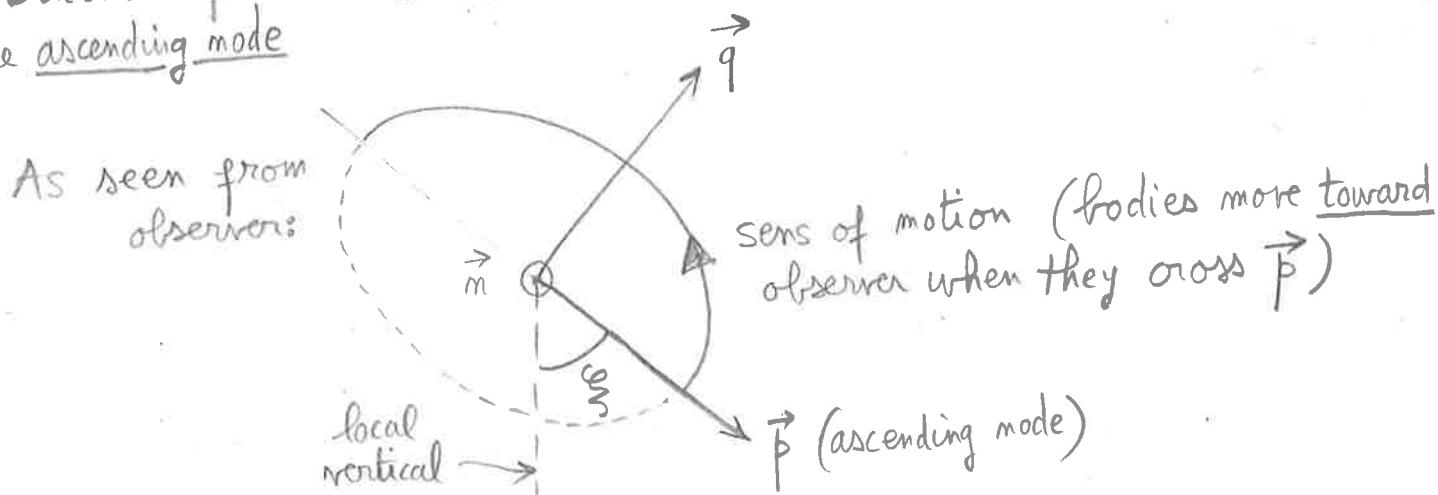 e ascending node
q
As seen from
observer:
sens of motion (bodies move toward
observer when they cross p)
n
ξ
local
vertical
p (ascending node)